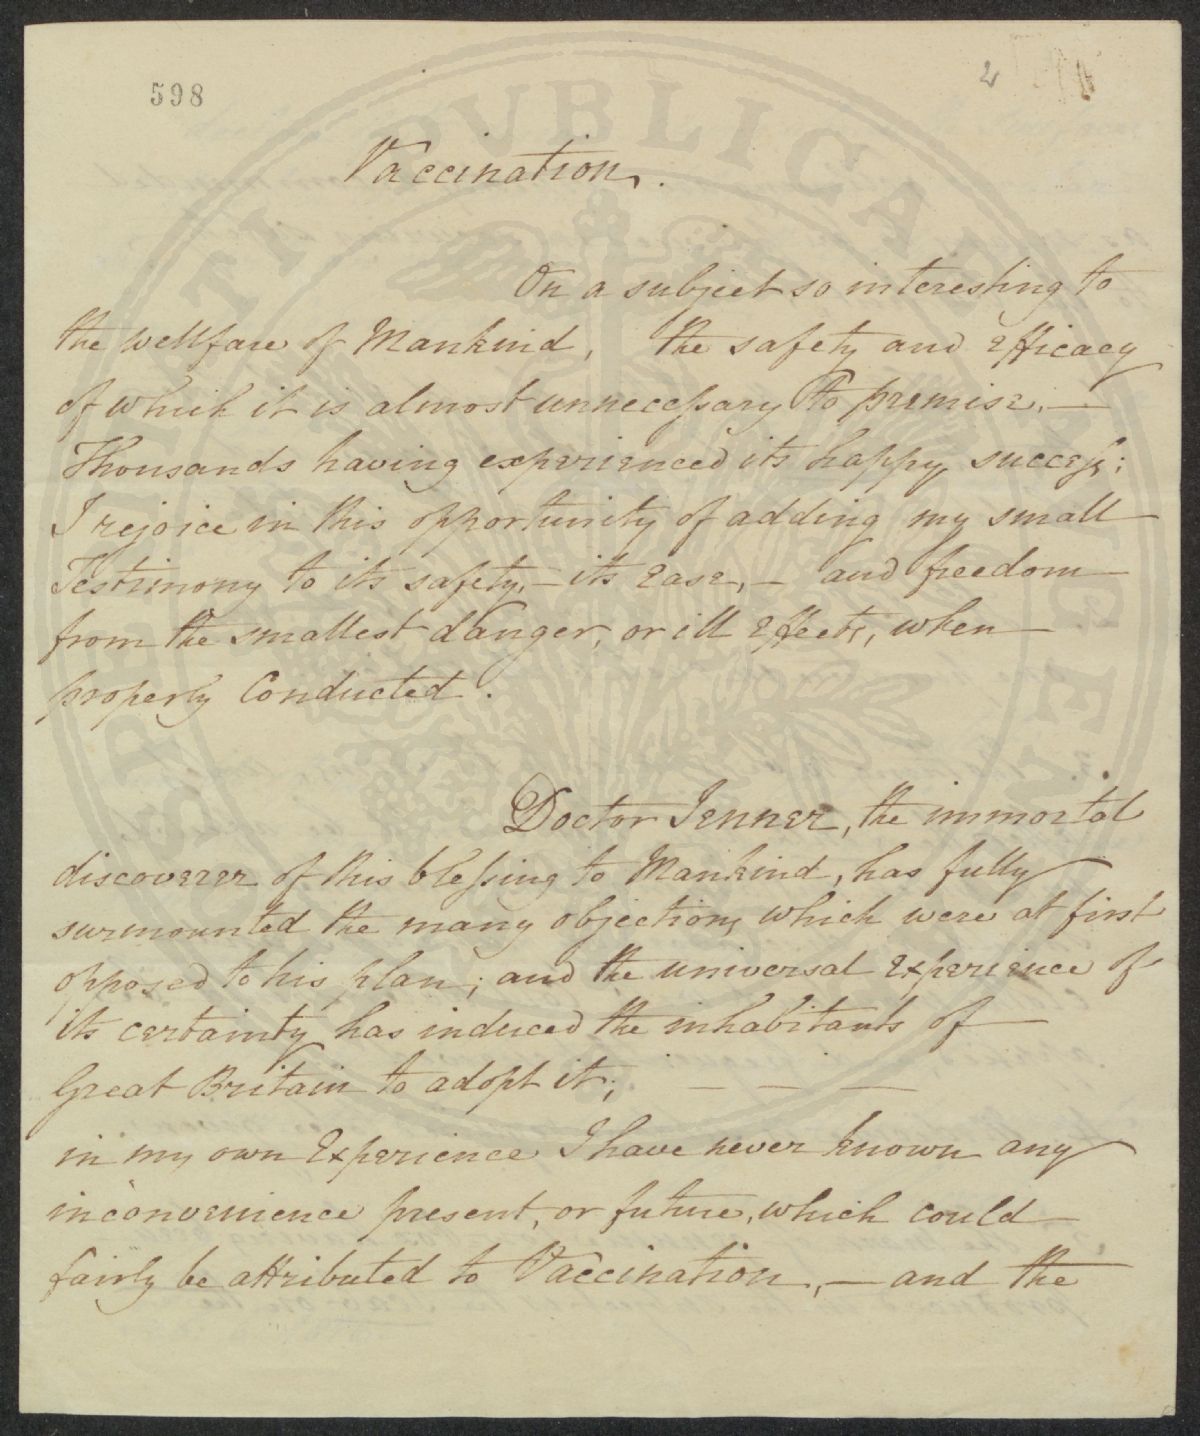 598
2
Vaccination.
On a subject so interesting to
the wellfare of Mankind, the safety and efficacy
of which it is almost unnecessary to premise. —
Thousands having experienced its happy success;
I rejoice in this opportunity of adding my small
Testimony to its safety, — its ease, — and freedom
from the smallest danger, or ill effects, when
properly Conducted.
Doctor Jenner, the immortal
discoverer of this blessing to Mankind, has fully
surmounted the many objections which were at first
opposed to his plan; and the universal experience of
its certainty has induced the inhabitants of
Great Britain to adopt it; — — —
in my own Experience I have never known any
inconvenience present, or future, which could
fairly be attributed to Vaccination, — and the